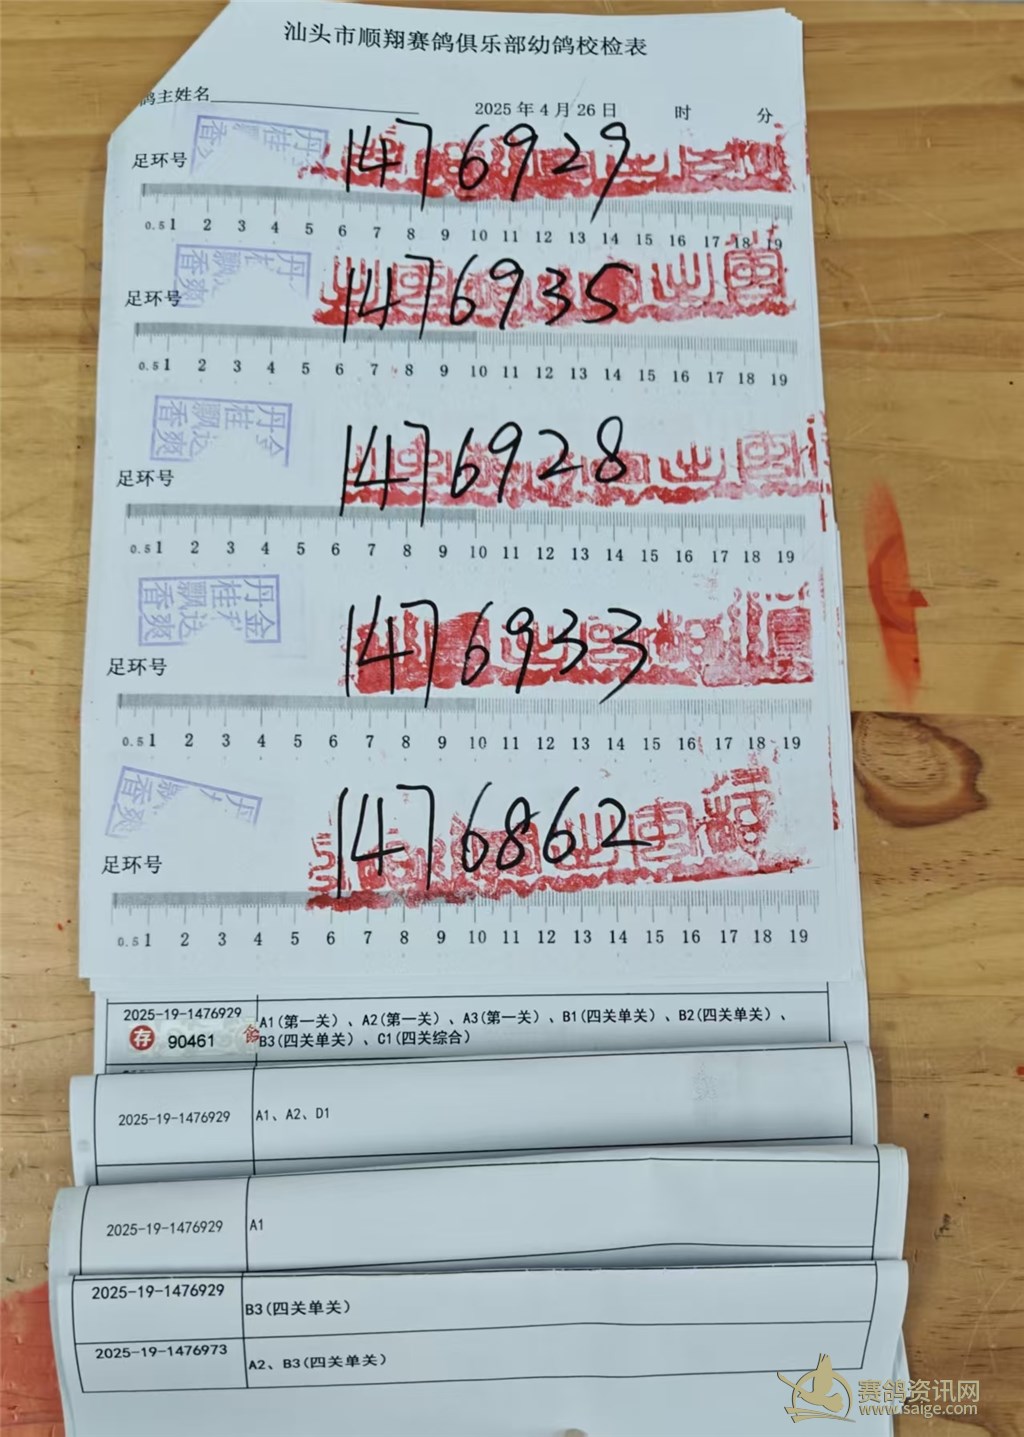 汕头市顺翔赛鸽俱乐部幼鸽校检表
鸽主姓名
2025 年 4 月 26 日 时 分
足环号 1476929
0.5 1 2 3 4 5 6 7 8 9 10 11 12 13 14 15 16 17 18 19
足环号 1476935
0.5 1 2 3 4 5 6 7 8 9 10 11 12 13 14 15 16 17 18 19
丹金
桂
飘达
香爽
足环号 1476928
0.5 1 2 3 4 5 6 7 8 9 10 11 12 13 14 15 16 17 18 19
丹金
桂
飘达
香爽
足环号 1476933
0.5 1 2 3 4 5 6 7 8 9 10 11 12 13 14 15 16 17 18 19
足环号 1476862
0.5 1 2 3 4 5 6 7 8 9 10 11 12 13 14 15 16 17 18 19
2025-19-1476929
存 90461
A1(第一关)、A2(第一关)、A3(第一关)、B1(四关单关)、B2(四关单关)、
B3(四关单关)、C1(四关综合)
2025-19-1476929 A1、A2、D1
2025-19-1476929 A1
2025-19-1476929 B3(四关单关)
2025-19-1476973 A2、B3(四关单关)
赛鸽资讯网
www.saige.com